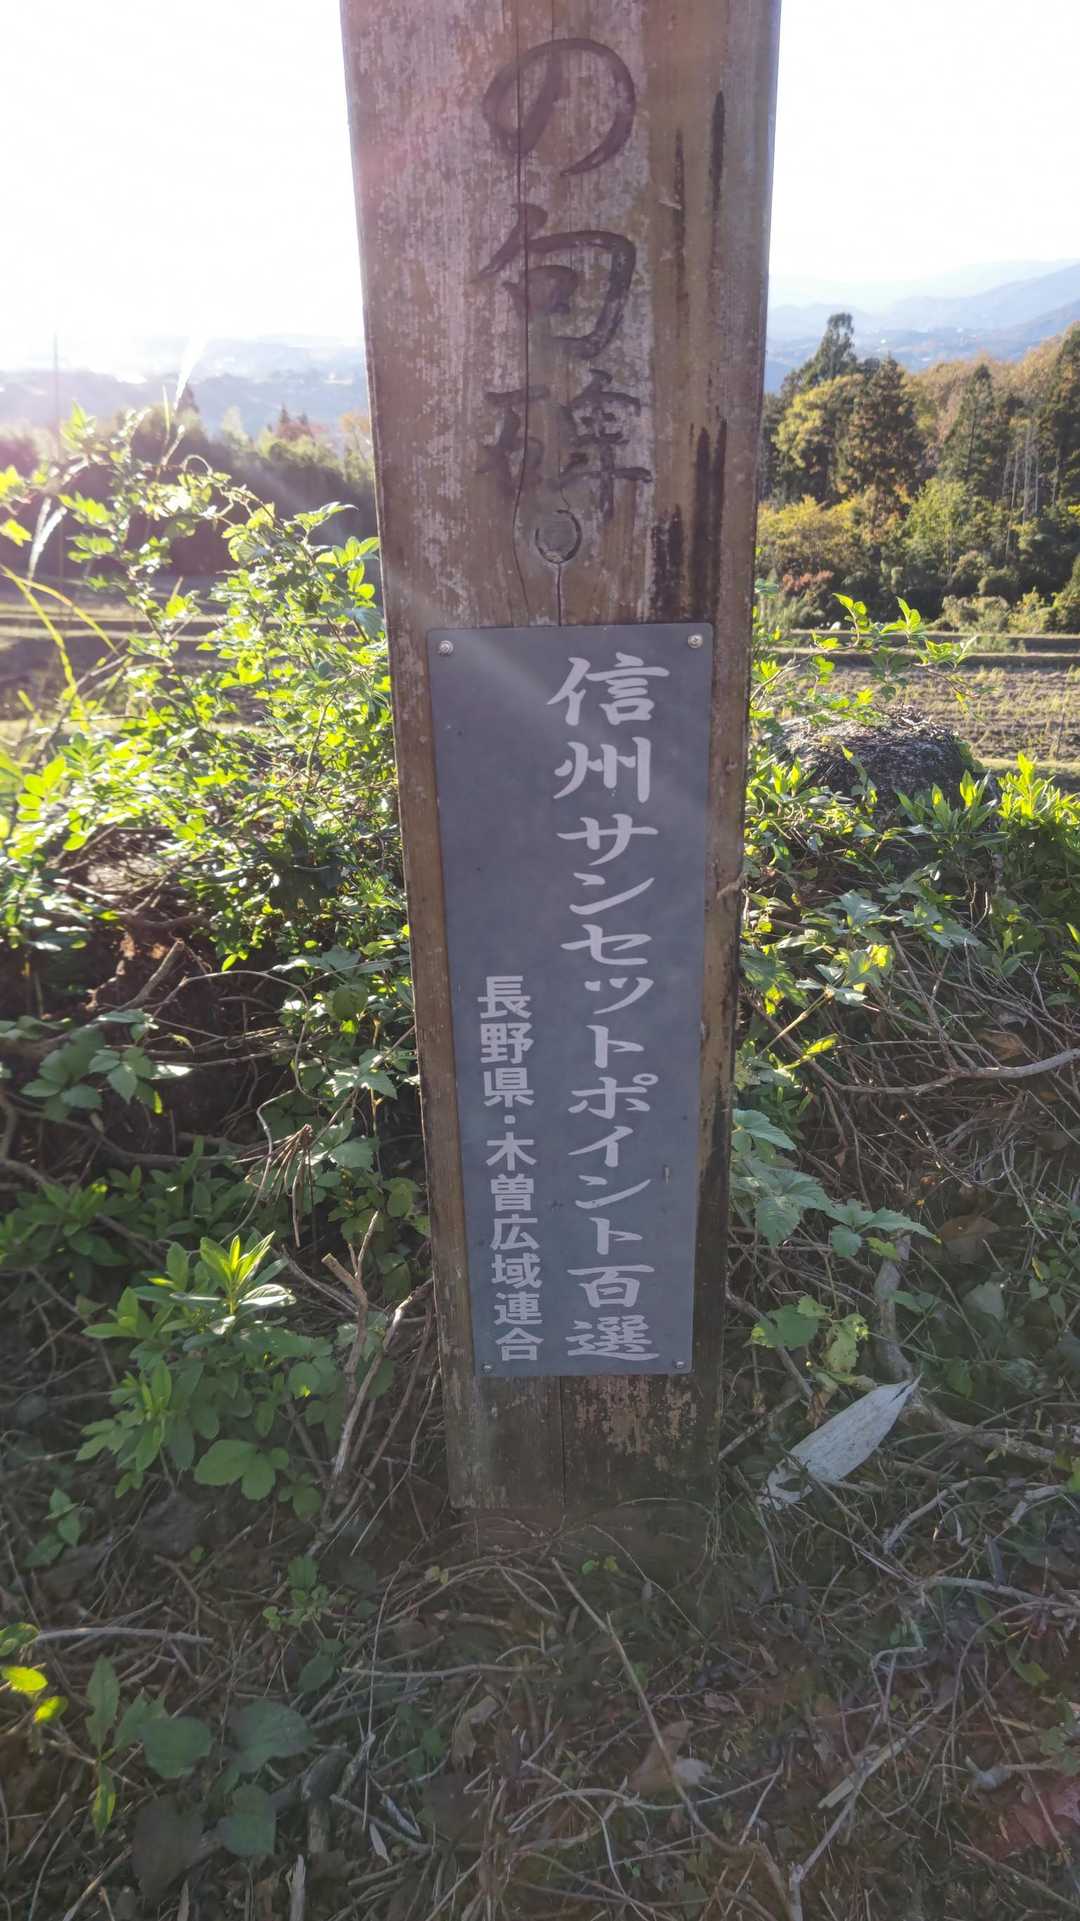 の句碑
信州サンセットポイント百選
長野県・木曽広域連合